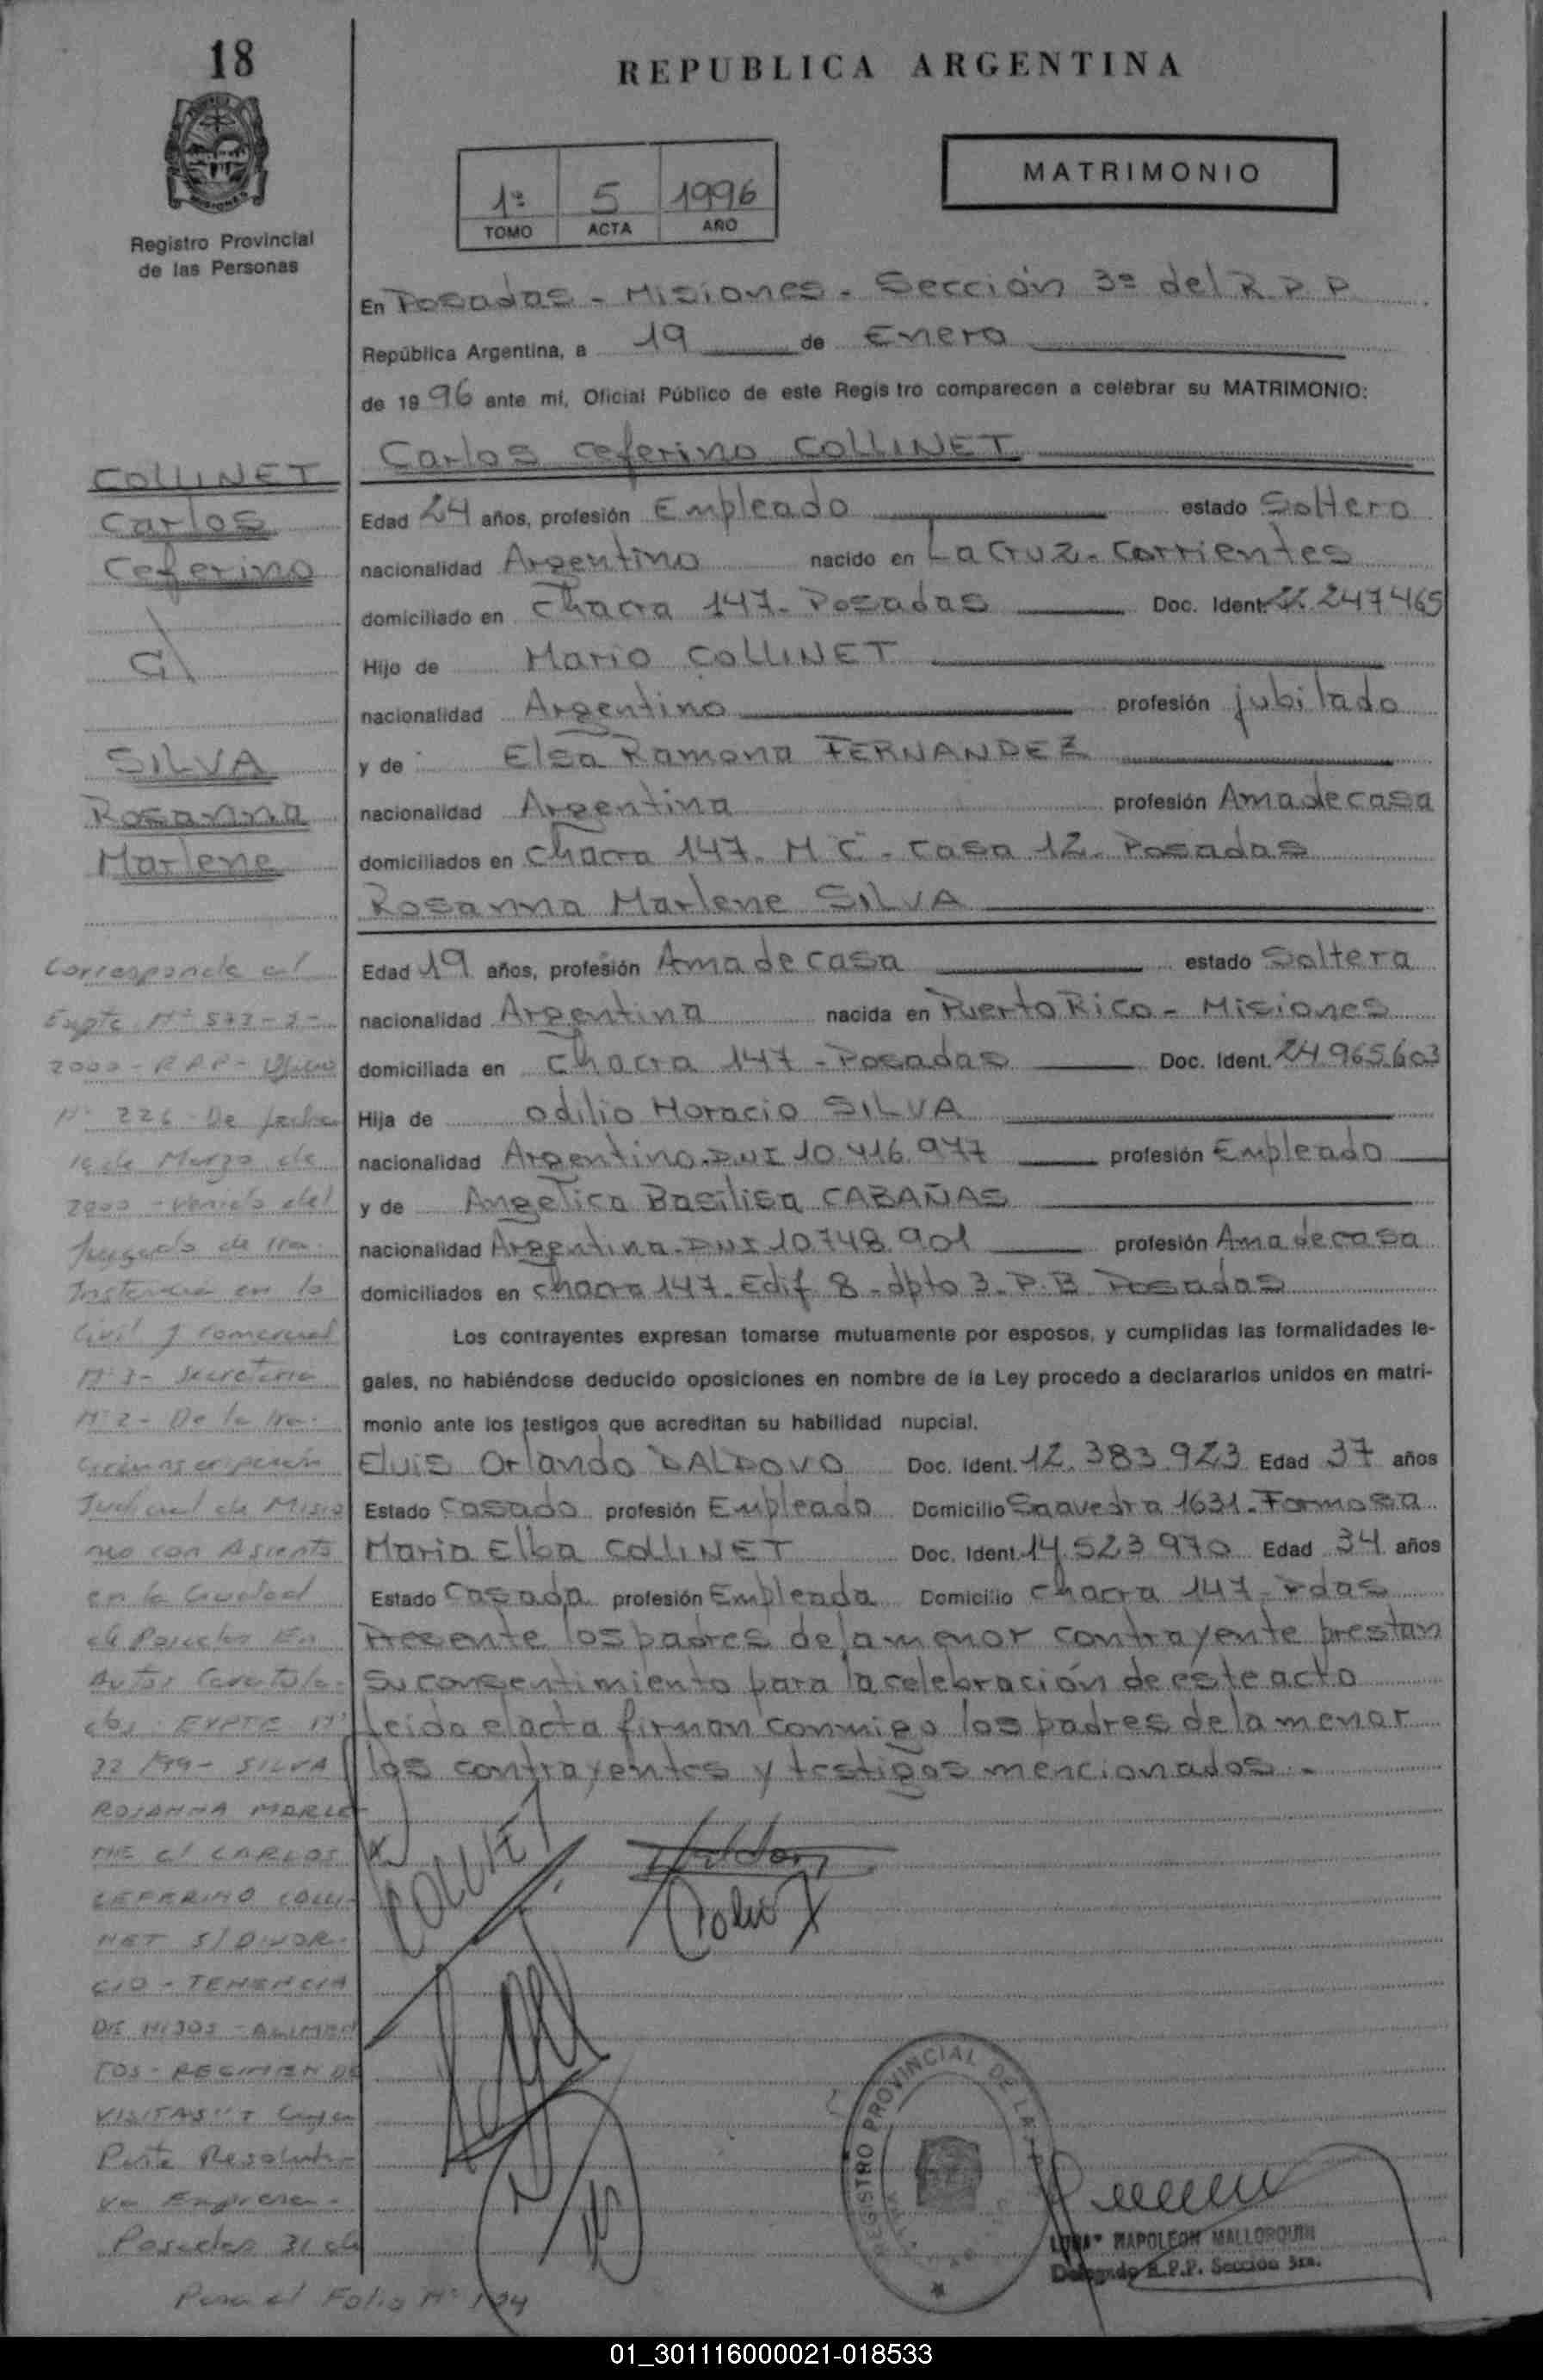 18
REPUBLICA ARGENTINA
MISIONES
Registro Provincial
de las Personas
1º 5 1996
TOMO ACTA AÑO
MATRIMONIO
En Posadas - Misiones - Sección 3ª del R P P
República Argentina, a 19 de Enero
de 1996 ante mí, Oficial Público de este Registro comparecen a celebrar su MATRIMONIO:
Carlos Ceferino COLLINET
Edad 24 años, profesión Empleado estado Soltero
nacionalidad Argentino nacido en La Cruz - Corrientes
domiciliado en Chacra 147 - Posadas Doc. Ident. 22.247465
Hijo de Mario COLLINET
nacionalidad Argentino profesión jubilado
y de Elsa Ramona FERNANDEZ
nacionalidad Argentina profesión Ama de casa
domiciliados en Chacra 147 - M C - Casa 12 - Posadas
Rosanna Marlene SILVA
Edad 19 años, profesión Ama de casa estado Soltera
nacionalidad Argentina nacida en Puerto Rico - Misiones
domiciliada en Chacra 147 - Posadas Doc. Ident. 24.965.603
Hija de Odilio Horacio SILVA
nacionalidad Argentino - DNI 10.416.977 profesión Empleado
y de Angelica Basilisa CABAÑAS
nacionalidad Argentina - DNI 10.748.901 profesión Ama de casa
domiciliados en Chacra 147 - Edif 8 - dpto 3 - P.B Posadas
Los contrayentes expresan tomarse mutuamente por esposos, y cumplidas las formalidades le-
gales, no habiéndose deducido oposiciones en nombre de la Ley procedo a declararlos unidos en matri-
monio ante los testigos que acreditan su habilidad nupcial.
Orlando Doc. Ident. 12.383.923 Edad 37 años
Estado Casado profesión Empleado Domicilio Saavedra 1631 - Formosa
Maria Elba COLLINET Doc. Ident. 14.523.970 Edad 34 años
Estado Casada profesión Empleada Domicilio Chacra 147 - Pdas
Presente los padres de la menor contrayente prestan
su consentimiento para la celebración de este acto
leida el acta firman conmigo los padres de la menor
los contrayentes y testigos mencionados.-
COLLINET
Carlos
Ceferino
c/
SILVA
Rosanna
Marlene
Corresponde al
Expte Nº
2000 - R P P - Oficio
Nº 226 De fecha
de Marzo de
2000 - venido del
Juzgado de 1ra.
Instancia en lo
Civil y Comercial
Nº 3 - Secretaria
Nº 2 - De la 1ra.
Circunscripción
Judicial de Misio
nes con Asiento
en la Ciudad
de Posadas En
Autos Caratula-
dos: EXPTE Nº
/99 - SILVA
ROSANNA MARLE
NE C/ CARLOS
CEFERINO COLLI-
NET S/ DIVOR-
CIO - TENENCIA
DE HIJOS - ALIMEN
TOS - REGIMEN DE
VISITAS" Cuya
Parte Resoluti-
va Expresa -
Posadas 31 de
Pasa al Folio Nº
COLLINET
REGISTRO PROVINCIAL DE LAS
NAPOLEON MALLORQUIN
Delegado R.P.P. Sección 3ra.
01_301116000021-018533